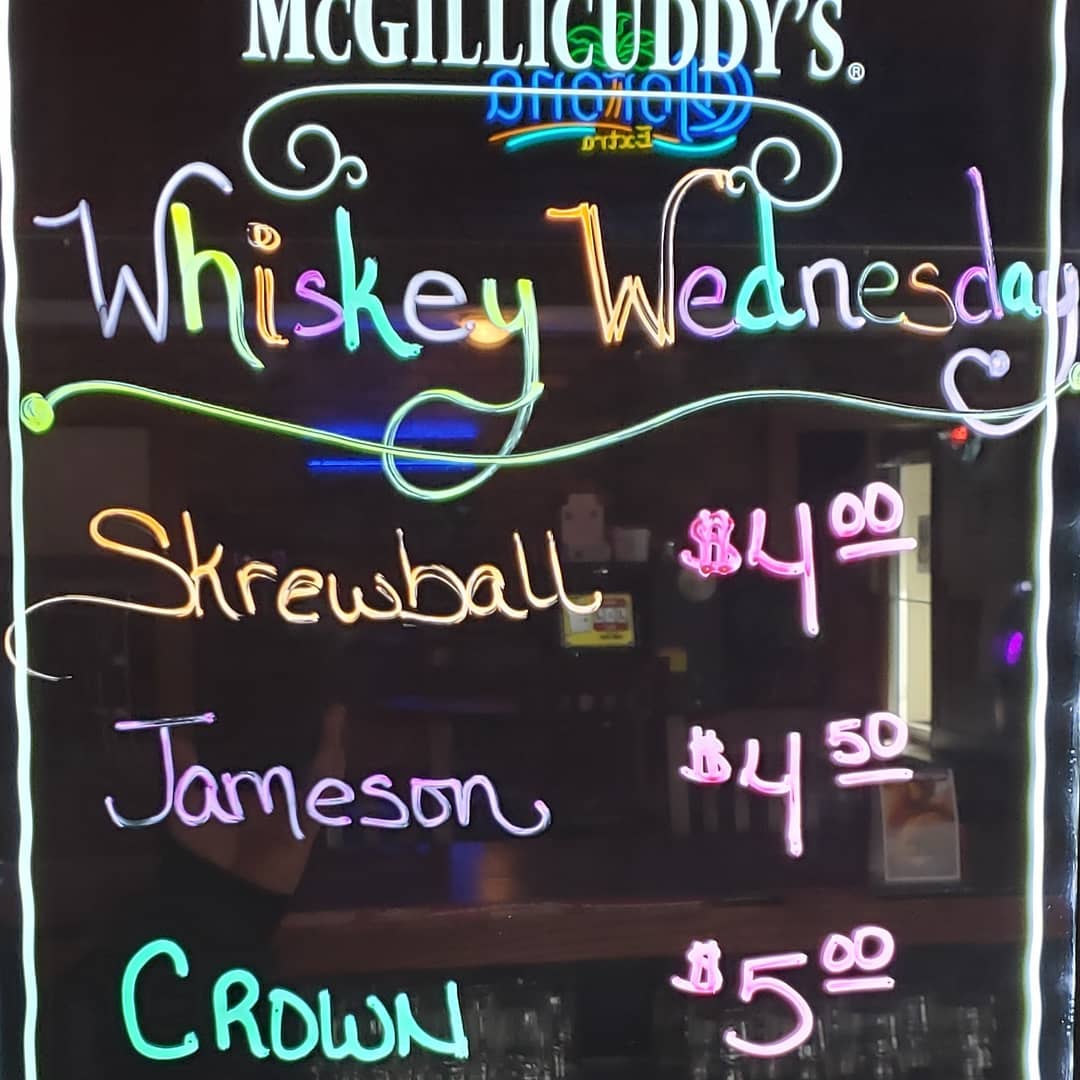 McGILLICUDDY'S®
Corona
Extra
Whiskey Wednesday
Skrewball $4.00
Jameson $4.50
CROWN $5.00